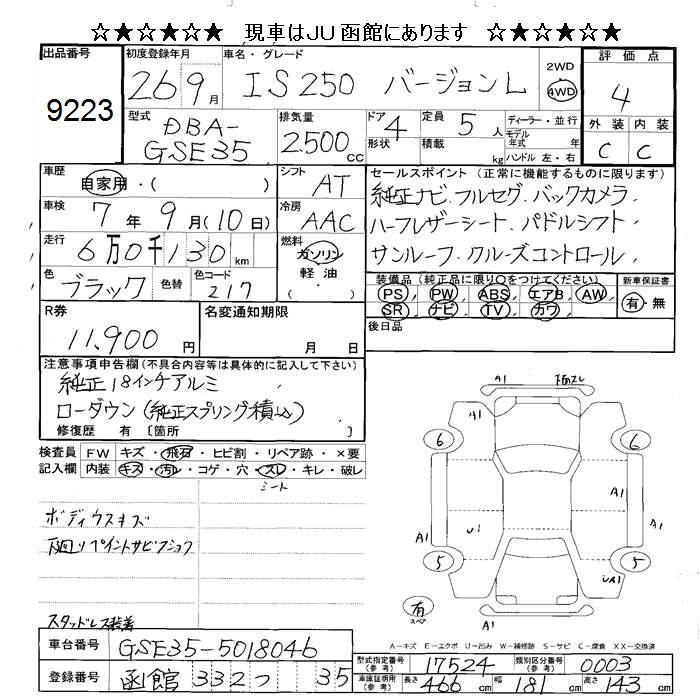 ☆★☆★☆★ 現車はJU函館にあります ☆★☆★☆★
出品番号 9223
初度登録年月 26 9月
車名・グレード IS250 バージョンL
2WD 4WD
評価点 4
外装 C 内装 C
型式 DBA-GSE35
排気量 2500cc
ドア形状 4
定員 5人
積載 kg
ディーラー・並行
モデル年式 年式
ハンドル 左・右
車歴 自家用・( )
シフト AT
車検 7年9月(10日)
冷房 AAC
走行 6万0千130km
燃料 ガソリン 軽油 ( )
色 ブラック 色替 色コード 217
セールスポイント (正常に機能するものに限ります)
純正ナビ.フルセグ.バックカメラ.
ハーフレザーシート.パドルシフト.
サンルーフ.クルーズコントロール.
装備品(純正品に限り○をつけてください)
PS, PW, ABS, エアB, AW,
SR, ナビ, TV, カワ,
新車保証書 有・無
R券 11,900円
名変通知期限 月 日
後日品
注意事項申告欄(不具合内容等は具体的に記入して下さい)
純正18インチアルミ
ローダウン(純正スプリング積込)
修復歴 有 〔箇所
検査員記入欄
FW キズ・飛石・ヒビ割・リペア跡・×要
内装 キズ・汚レ・コゲ・穴・スレ・キレ・破レ
シート
ボディウスキズ
下廻りペイントサビフショク
スタッドレス装着
A1 下面スレ
A1
6 6
A1
A1 U1 A1
A1
5 5
UA1
有 スペア
A1
A-キズ E-エクボ U-凹み W-補修跡 S-サビ C-腐食 XX-交換済
車台番号 GSE35-5018046
登録番号 函館 332 つ 35
型式指定番号(参考) 17524
類別区分番号(参考) 0003
車庫証明用(参考) 長さ 466cm 幅 181cm 高さ 143cm